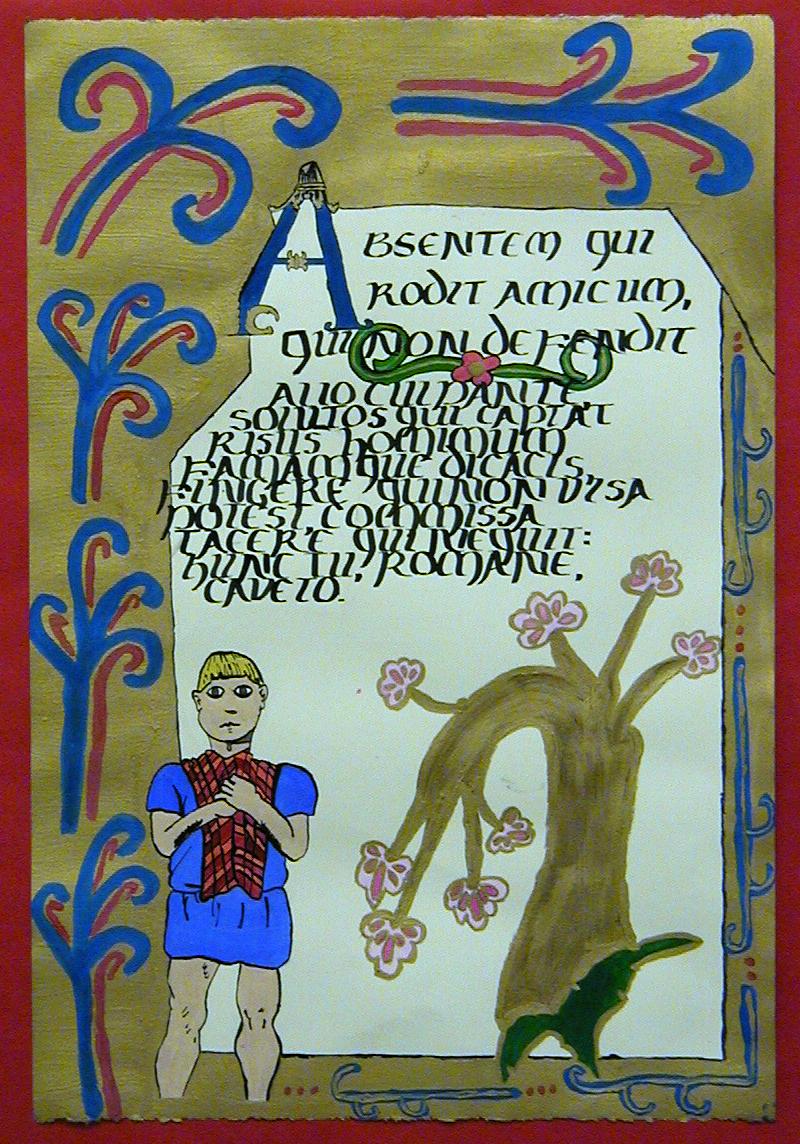 ABSENTEM QUI
RODIT AMICUM,
QUI NON DEFENDIT
ALIO CULPANTE
SOLUTOS QUI CAPTAT
RISUS HOMINUM
FAMAMQUE DICACIS,
FINGERE QUI NON VISA
POTEST, COMMISSA
TACERE QUI NEQUIT:
HUNC TU, ROMANE,
CAVETO.